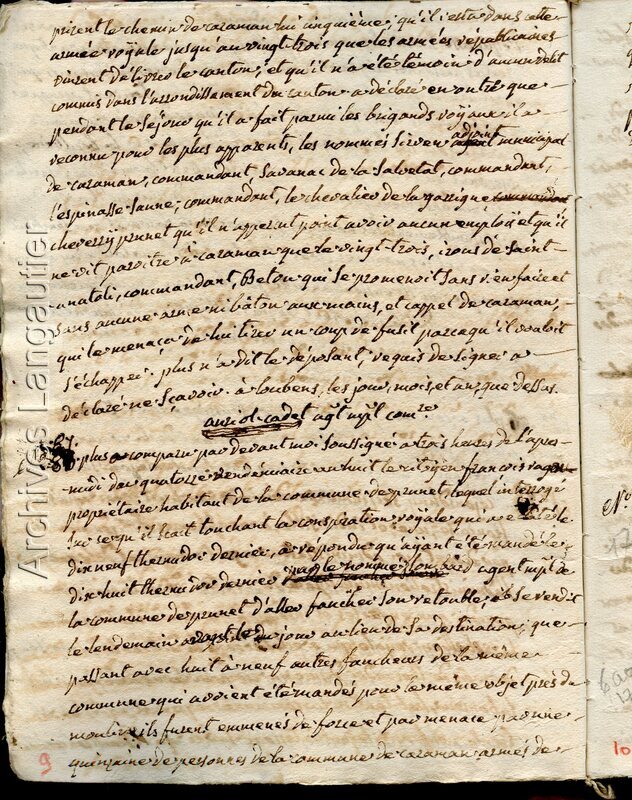 prirent le chemin de caraman lui cinquième; qu'il resta dans cette
armée royale jusqu'au vingt-trois que les armées républicaines
vinrent délivrer le canton, et qu'il n'a été témoin d'aucun délit
commis dans l'arrondissement du canton a déclaré en outre que
pendant le séjour qu'il a fait parmi les brigands royaux il a
reconnu pour les plus apparents, les nommés Sirven adjoint municipal
de caraman, commandant, Savanac de la Salvetat, commandant,
l'espinasse-Saune, commandant, le chevalier de la garrigue commandant
cheverry prunet qu'il n'apperçut point avoir aucun employ et qu'il
ne vit paroître à caraman que le vingt-trois, izous de Saint-
anatoli, commandant, Belou qui se promenoit sans rien faire et
sans aucune arme ni bâton aux mains, et cappel de caraman,
qui le menaça de lui tirer un coup de fusil parcequ'il vouloit
s'échapper. plus n'a dit le déposant; requis de signer a
déclaré ne sçavoir. à loubens, les jour, mois, et an, que dessus.
auriol-cadet agt mpl comre
plus a comparu pardevant moi soussigné à trois heures de l'apre-
midi du quatorze vendémiaire an huit le citoyen françois
propriétaire habitant de la commune de prunet, lequel interrogé
sur ce qu'il sçait touchant la conspiration royale qui a éclaté le
dix neuf thermidor dernier, a répondu qu'ayant été mandé le
dix huit thermidor dernier par le nommé agent mpl de
la commune de prunet d'aller faucher son retouble, il se rendit
le lendemain avant le jour au lieu de sa destination; que
passant avec huit à neuf autres faucheurs de la même
commune qui avoient été mandés pour le même objet près du
moulin ils furent emmenés de force et par menace par une
quinzaine de personnes de la commune de caraman armés de
9
10
N°
Archives Langautier